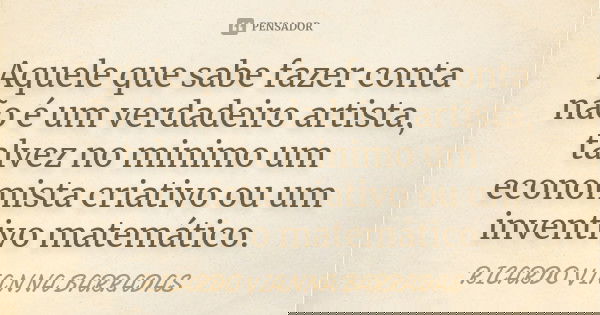 PENSADOR
Aquele que sabe fazer conta
não é um verdadeiro artista,
talvez no minimo um
economista criativo ou um
inventivo matemático.
RICARDO VIANNA BARRADAS